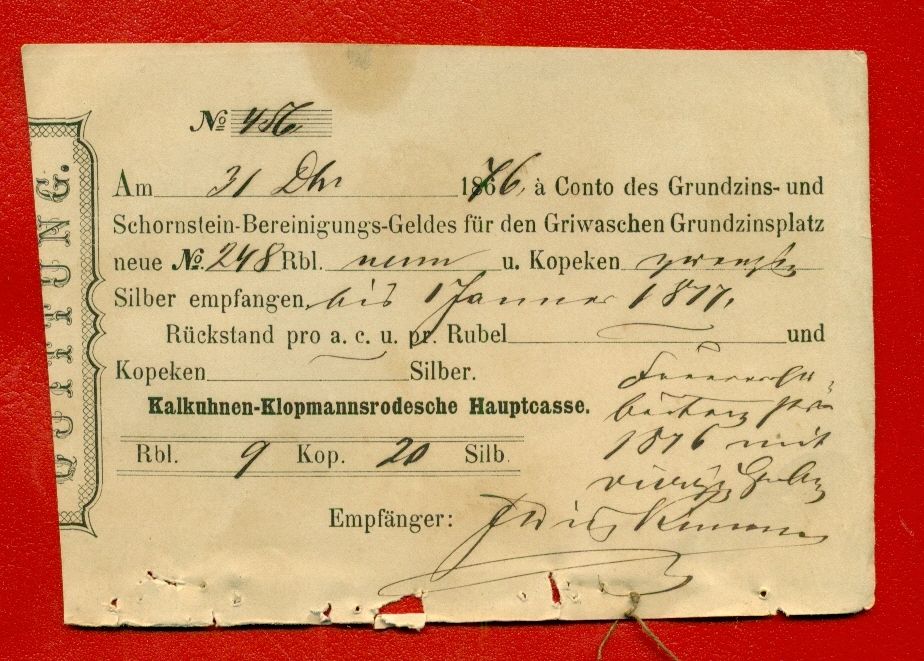 QUITTUNG.
№ 456
Am 31 Dbr 1876, à Conto des Grundzins- und
Schornstein-Bereinigungs-Geldes für den Griwaschen Grundzinsplatz
neue №. 248 Rbl. neun u. Kopeken zwanzig
Silber empfangen, bis 1 Januar 1877.
Rückstand pro a. c. u. pr. Rubel und
Kopeken Silber.
Kalkuhnen-Klopmannsrodesche Hauptcasse.
1876 mit
Rbl. 9 Kop. 20 Silb.
Empfänger: